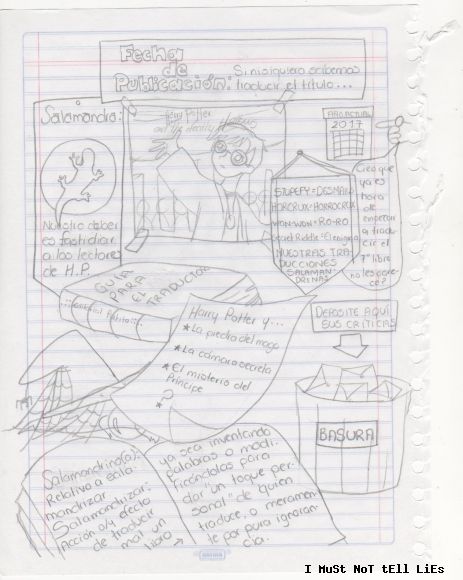 Fecha
de
Publicación:
Si ni siquiera sabemos
traducir el título...
Salamandra:
Nuestro deber
es fastidiar
a los lectores
de H.P.
Harry Potter
and the deathly hallows
AÑO ACTUAL
2017
Creo que
ya es
hora de
empezar
a tradu-
cir el
7º libro
no les pare-
ce?
STUPEFY=DESMAIUS
HORCRUX=HORROCRUX
WON-WON=RO-RO
NUESTRAS TRA
DUCCIONES
SALAMAN
DRINAS
GUÍA
PARA
EL
TRADUCTOR
Harry Potter y...
* La piedra del mago
* La cámara secreta
* El misterio del
Príncipe
* ?
DEPOSITE AQUÍ
SUS CRÍTICAS
BASURA
Salamandrino(a):
Relativo a sala-
mandrizar
Salamandrizar:
Acción o/y efecto
de traducir
mal un
libro →
ya sea inventando
palabras o modi-
ficándolas para
dar "un toque per-
sonal" de quien
traduce, o meramen-
te por pura ignoran-
cia.
I MuSt NoT tEll LiEs